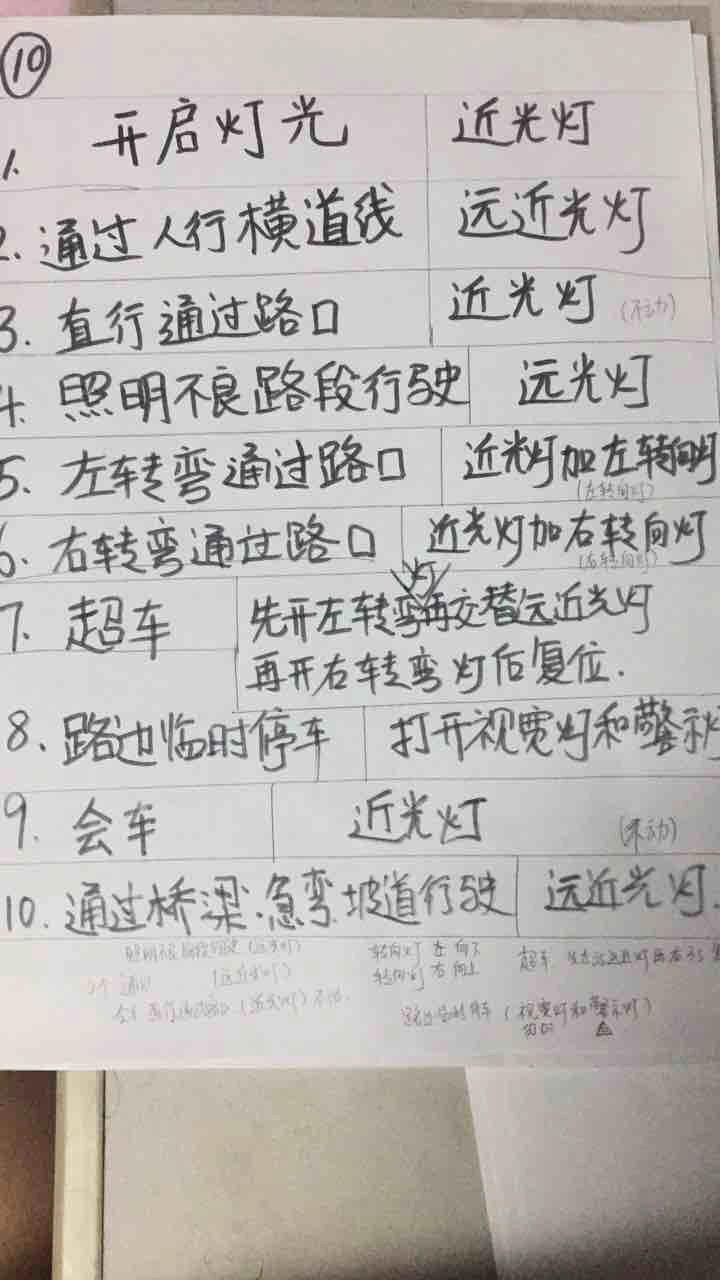 ⑩
1. 开启灯光 近光灯
2. 通过人行横道线 远近光灯
3. 直行通过路口 近光灯 (不动)
4. 照明不良路段行驶 远光灯
5. 左转弯通过路口 近光灯加左转向灯
(左转向灯)
6. 右转弯通过路口 近光灯加右转向灯
(右转向灯)
灯
7. 超车 先开左转弯再交替远近光灯
再开右转弯灯后复位.
8. 路边临时停车 打开视宽灯和警示
9. 会车 近光灯 (不动)
10. 通过桥梁.急弯.坡道行驶 远近光灯.
照明不良路段行驶 (远光灯) 转向灯 左 向下 超车
2个 通过 (远近光灯) 转向灯 右 向上
会车 直行通过路口 (近光灯) 不动. 路边临时停车 (视宽灯和警示灯)